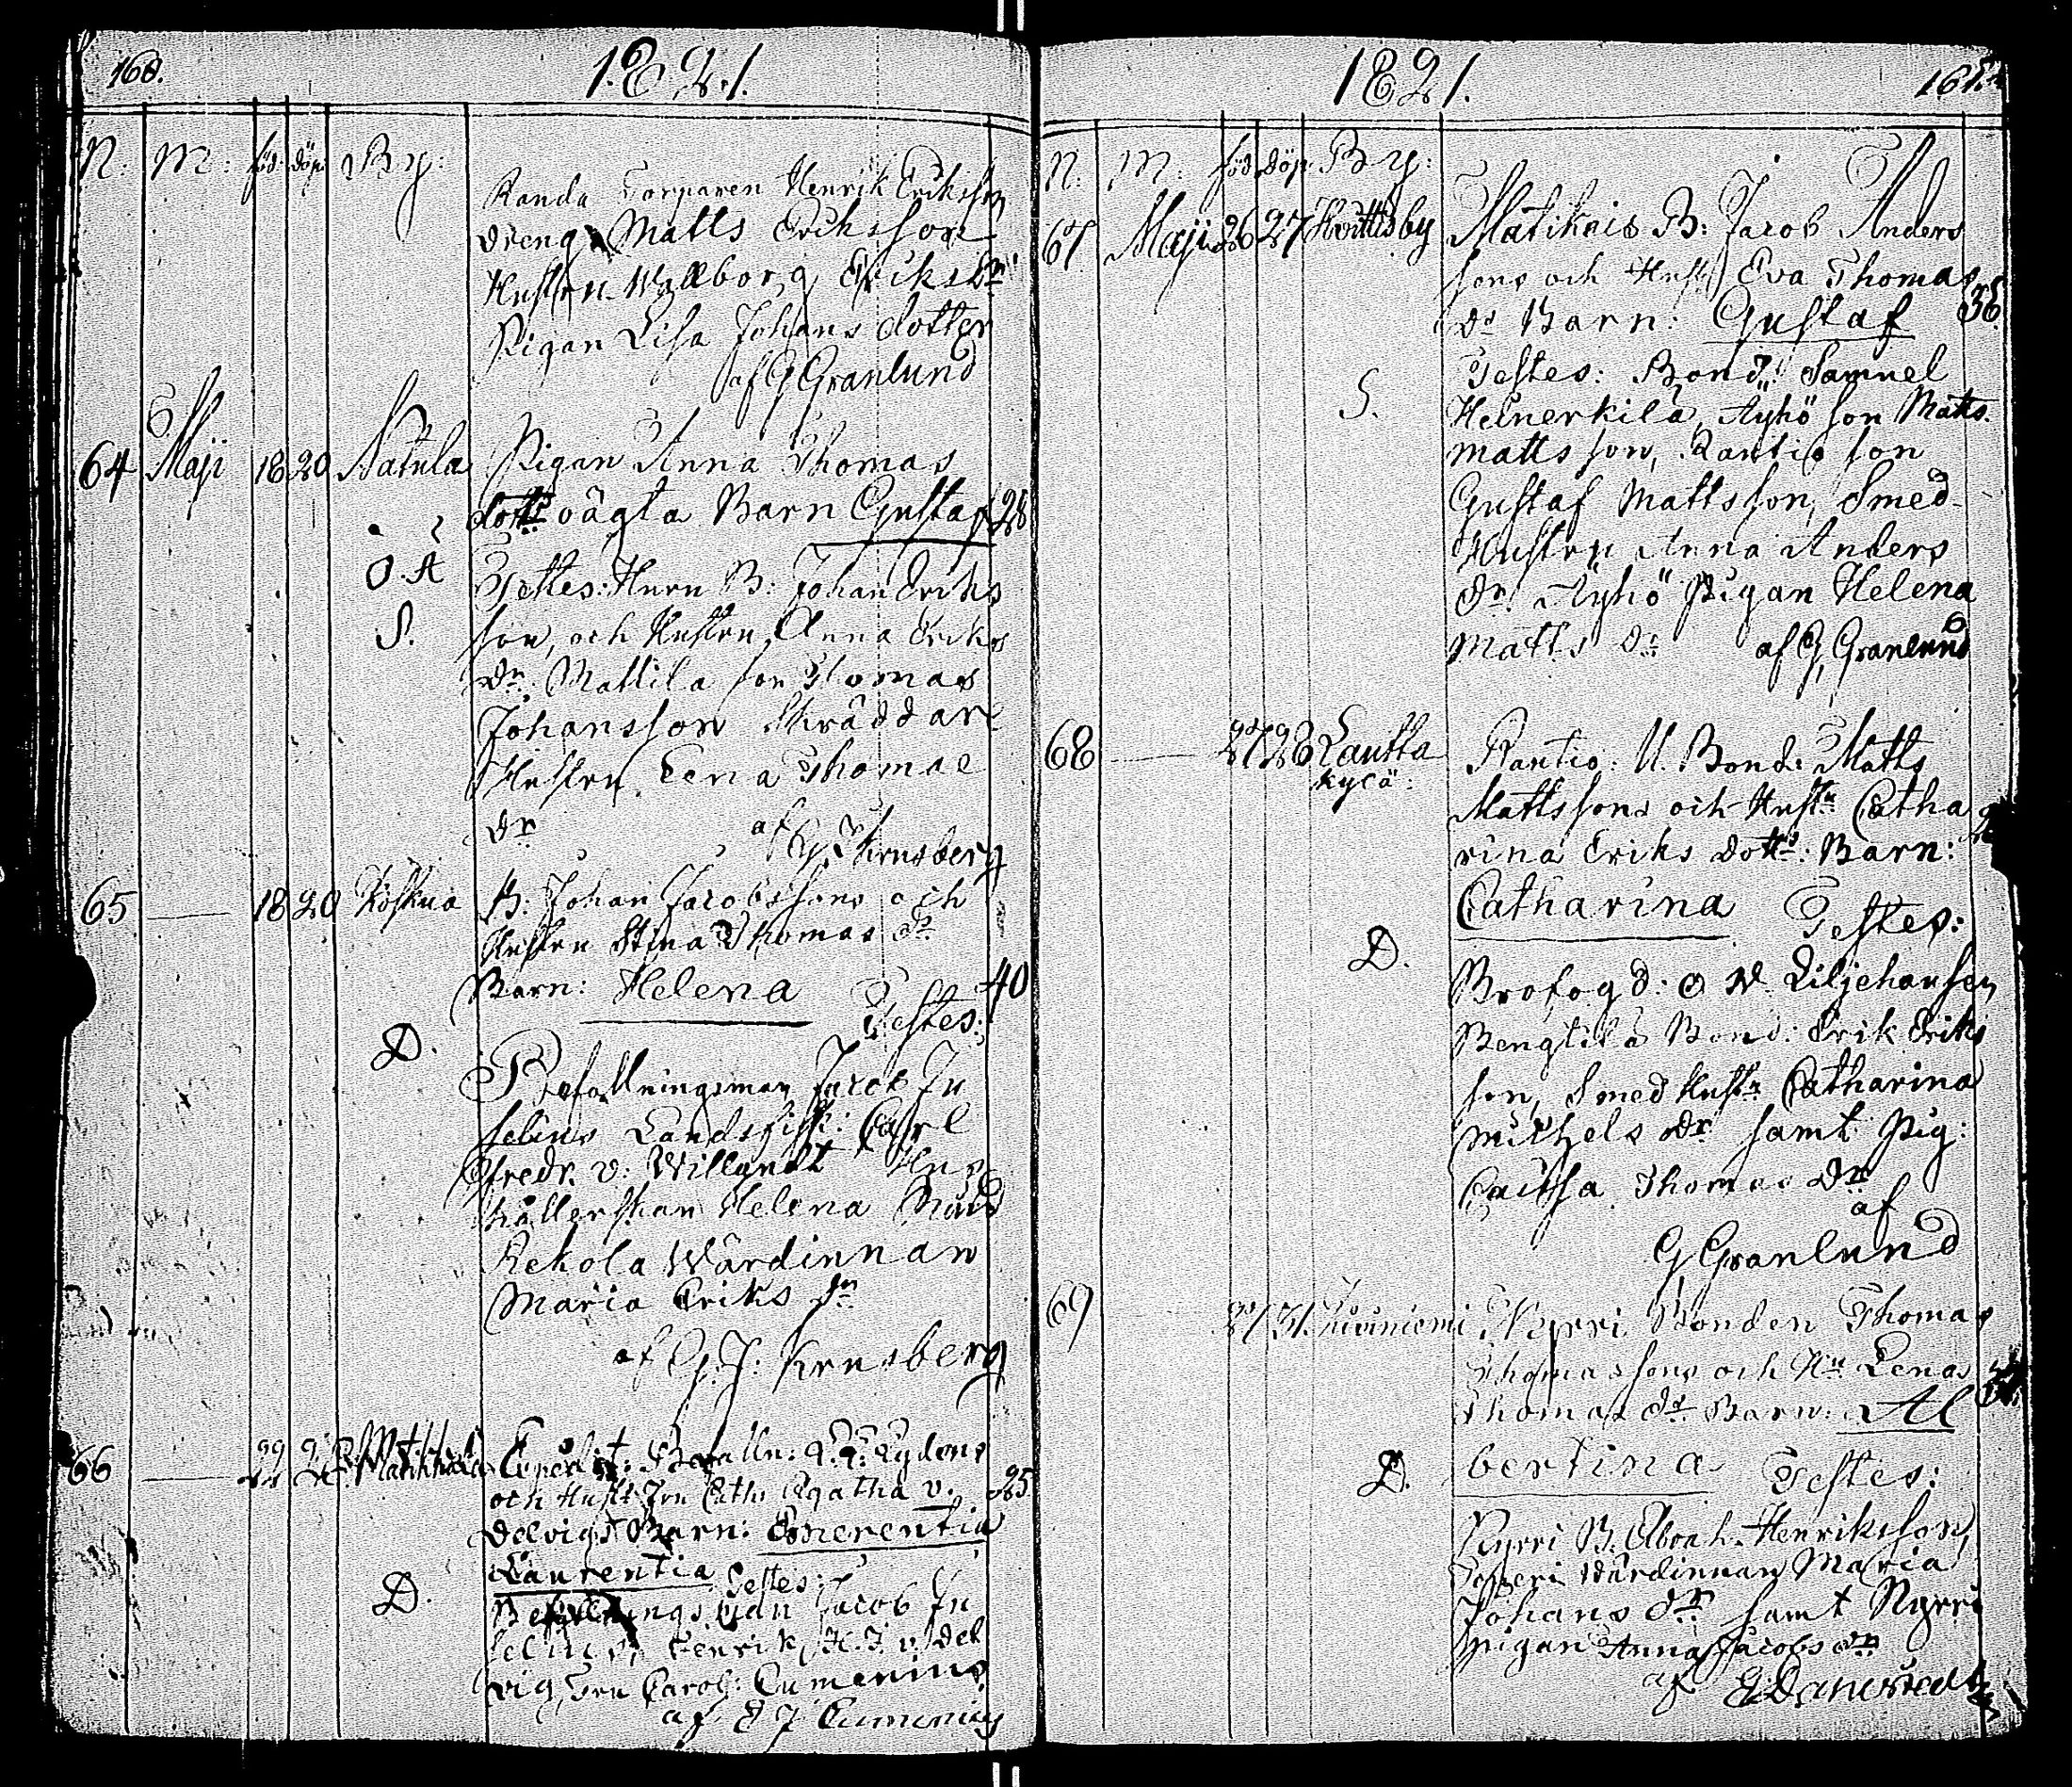 160.
1821.
N: M: föd: döp: By:
Randa Torparen Henrik Eriksson
dreng Matts Eriksson
Hustru Wallborg Eriks dr
Pigan Lisa Johans dotter
af G Granlund
64 Maji 18 20 Natula Pigan Anna Thomas
dottr oägta Barn Gustaf 28
O.Ä
S.
Testes: Huru B: Johan Eriks
son, och Hustru Anna Eriks
dr. Mattila son Thomas
Johansson Skräddare
Hustru Lena Thomae
dr af
G. J. Krusberg
65 — 18 20 Koskua B. Johan Jacobssons och
Hustru Stina Thomas dr
Barn: Helena 40
Testes:
D.
Befallningsman Jacob Ju
selius Landsfisk: Carl
Fredr. v: Willandt Hus
hållerskan Helena
Rekola Wärdinnan
Maria Eriks dr
af G. J: Krusberg
66 — 22 Expedit: Befalln: Rydens
och Hustr Fru Cath: Agatha v. 25
Delvigs Barn: Emerentia
Laurentia Testes:
D.
Befallningsman Jacob Ju
selius, Henrik H. J. v. Del
vig, Fru Carol: Cumenius
af E J Cumenius
1821.
161.
N: M: föd döp. By:
67 Maji 26 27 Hvittisby Matikais B: Jacob Anders
sons och Hustr Eva Thomas
dr Barn: Gustaf 36.
S.
Testes: Bond: Samuel
Heinerkila, Äyhö son Matts
Mattsson, Rantio son
Gustaf Mattsson, Smed-
Hustru Anna Anders
dr. Äyhö Pigan Helena
Matts dr af G Granlund
68 — 27 28 Lautta
kylä: Rantio: U. Bond: Matts
Mattssons och Hustr Catha
rina Eriks dottr: Barn:
Catharina Testes:
D.
Brofogd: O W. Liljehansen
Bengtilä Bond: Erik Eriks
son, Smed Hustr Catharina
Michels dr samt Pig:
Caissa Thomas dr
af
G Granlund
69 — 27 31. Kiviniemi Nyrri Bonden Thomas
Thomassons och Hu Lena
Thomas dr. Barn: Al
bertina Testes:
D.
Nyrri B. Abrah. Henriksson,
Wärdinnan Maria
Johans dr samt Nyrri
pigan Anna Jacobs dr
af E Danerstedt